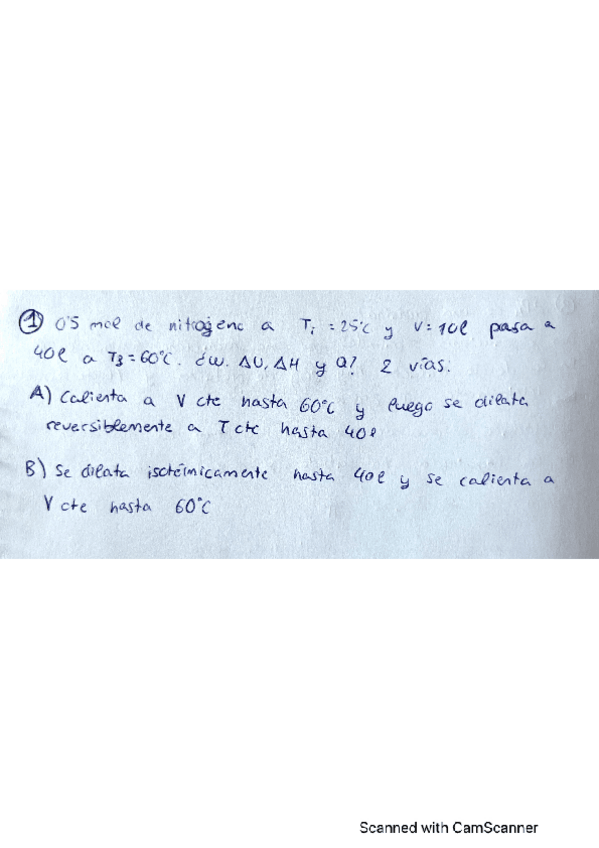 ① 0'5 mol de nitrógeno a Ti = 25°C y V = 10l pasa a
40l a T3 = 60°C. ¿w, ΔU, ΔH y Q? 2 vías:
A) Calienta a V cte hasta 60°C y luego se dilata
reversiblemente a T cte hasta 40l
B) Se dilata isotérmicamente hasta 40l y se calienta a
V cte hasta 60°C
Scanned with CamScanner